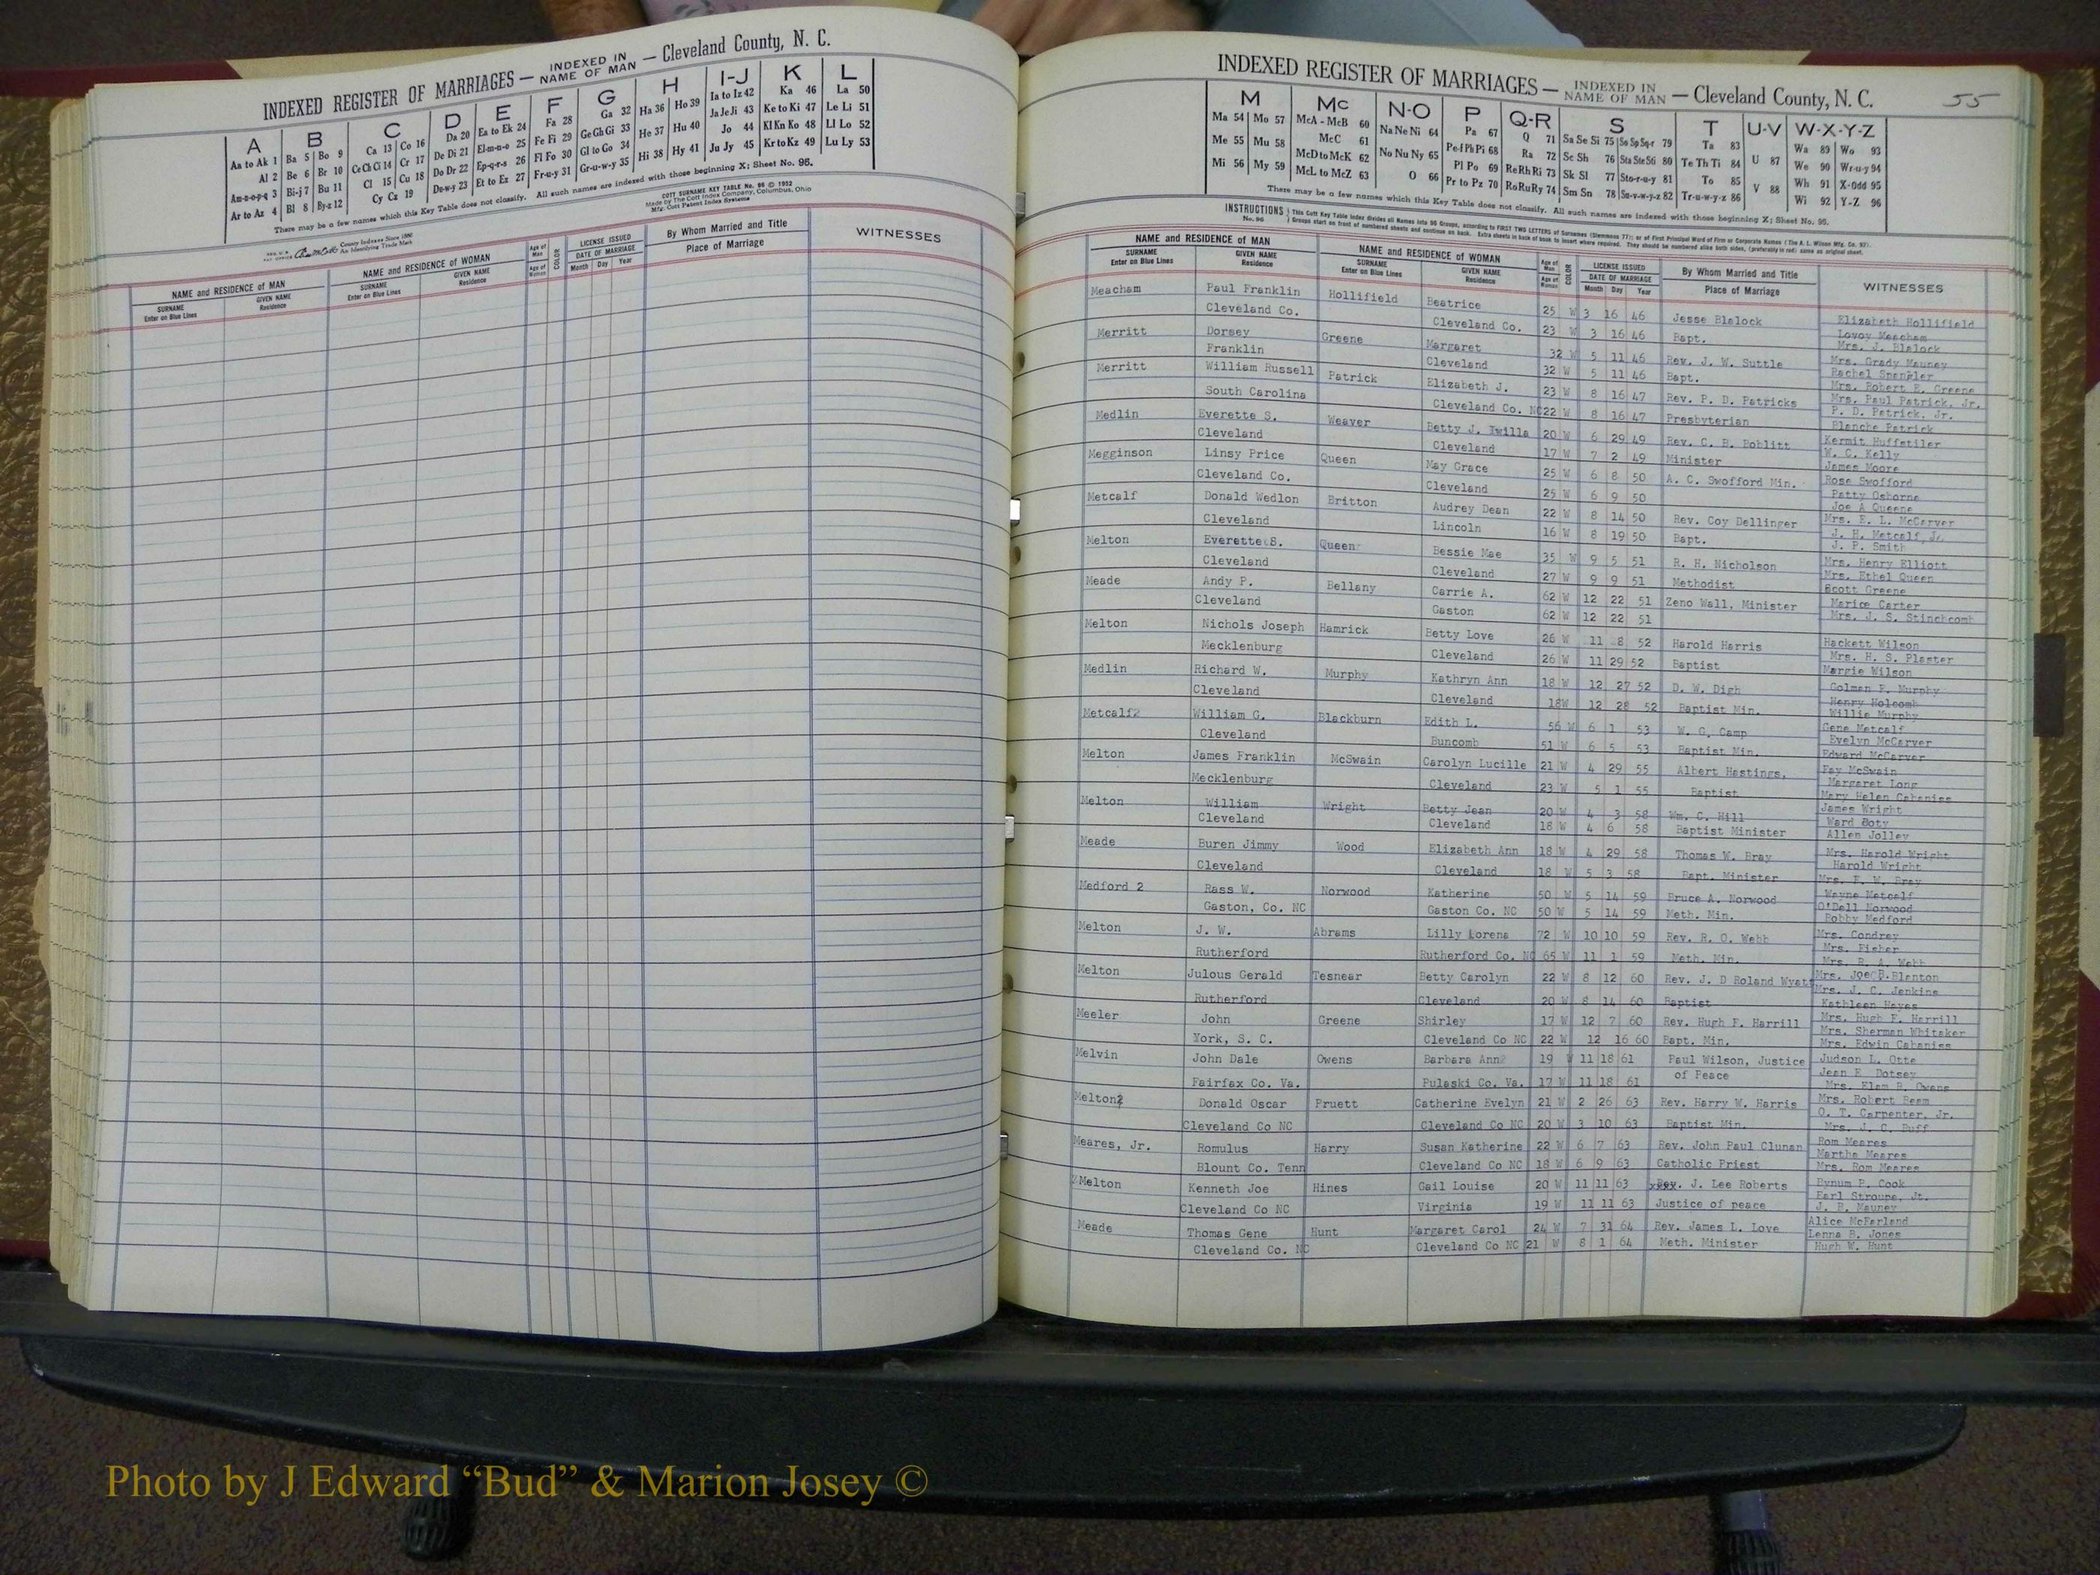 INDEXED REGISTER OF MARRIAGES — INDEXED IN NAME OF MAN — Cleveland County, N. C.
A B C D E F G H I-J K L
Aa to Ak 1 Ba 5 Bo 9 Ca 13 Co 16 Da 20 Ea to Ek 24 Fa 28 Ga 32 Ha 36 Ho 39 Ia to Iz 42 Ka 46 La 50
Al 2 Be 6 Br 10 Ce Ch Ci 14 Cr 17 De Di 21 El-m-n-o 25 Fe Fi 29 Ge Gh Gi 33 He 37 Hu 40 Ja Je Ji 43 Ke to Ki 47 Le Li 51
Am-n-o-p-q 3 Bi-j 7 Bu 11 Cl 15 Cu 18 Do Dr 22 Ep-q-r-s 26 Fl Fo 30 Gl to Go 34 Hi 38 Hy 41 Jo 44 Kl Kn Ko 48 Ll Lo 52
Ar to Az 4 Bl 8 By-z 12 Cy Cz 19 Du-w-y 23 Et to Ez 27 Fr-u-y 31 Gr-u-w-y 35 Ju Jy 45 Kr to Kz 49 Lu Ly 53
There may be a few names which this Key Table does not classify. All such names are indexed with those beginning X; Sheet No. 95.
COTT SURNAME KEY TABLE No. 96 © 1952
Made by The Cott Index Company, Columbus, Ohio
Mfg. Cott Patent Index Systems
County Indexes Since 1888
An Identifying Trade Mark
NAME and RESIDENCE OF MAN NAME and RESIDENCE OF WOMAN Age of Man Age of Woman COLOR LICENSE ISSUED DATE OF MARRIAGE By Whom Married and Title WITNESSES
SURNAME Enter on Blue Lines GIVEN NAME Residence SURNAME Enter on Blue Lines GIVEN NAME Residence Month Day Year Place of Marriage
INDEXED REGISTER OF MARRIAGES — INDEXED IN NAME OF MAN — Cleveland County, N. C. 55
M Mc N-O P Q-R S T U-V W-X-Y-Z
Ma 54 Mo 57 McA - McB 60 Na Ne Ni 64 Pa 67 Q 71 Sa Se Si 75 So Sp Sq-r 79 Ta 83 U 87 Wa 89 Wo 93
Me 55 Mu 58 McC 61 No Nu Ny 65 Pe-f Ph Pi 68 Ra 72 Sc Sh 76 Sta Ste Sti 80 Te Th Ti 84 V 88 We 90 Wr-u-y 94
Mi 56 My 59 McD to McK 62 O 66 Pl Po 69 Re Rh Ri 73 Sk Sl 77 Sto-r-u-y 81 To 85 Wh 91 X-Odd 95
McL to McZ 63 Pr to Pz 70 Ro Ru Ry 74 Sm Sn 78 Su-v-w-y-z 82 Tr-u-w-y-z 86 Wi 92 Y-Z 96
There may be a few names which this Key Table does not classify. All such names are indexed with those beginning X; Sheet No. 95.
INSTRUCTIONS No. 96
NAME and RESIDENCE OF MAN NAME and RESIDENCE OF WOMAN Age of Man Age of Woman COLOR LICENSE ISSUED DATE OF MARRIAGE By Whom Married and Title WITNESSES
SURNAME Enter on Blue Lines GIVEN NAME Residence SURNAME Enter on Blue Lines GIVEN NAME Residence Month Day Year Place of Marriage
Meacham Paul Franklin Hollifield Beatrice 25 W 3 16 46 Jesse Blalock Elizabeth Hollifield
Cleveland Co. Cleveland Co. 23 W 3 16 46 Bapt. Lovoy Meacham
Mrs. J. Blalock
Merritt Dorsey Greene Margaret 32 W 5 11 46 Rev. J. W. Suttle Mrs. Grady Mauney
Franklin Cleveland 32 W 5 11 46 Bapt. Rachel Spangler
Mrs. Robert E. Greene
Merritt William Russell Patrick Elizabeth J. 23 W 8 16 47 Rev. P. D. Patricks Mrs. Paul Patrick, Jr.
South Carolina Cleveland Co. NC 22 W 8 16 47 Presbyterian P. D. Patrick, Jr.
Blanche Patrick
Medlin Everette S. Weaver Betty J. Twilla 20 W 6 29 49 Rev. C. B. Boblitt Kermit Huffstiler
Cleveland Cleveland 17 W 7 2 49 Minister W. C. Kelly
James Moore
Megginson Linsy Price Queen May Grace 25 W 6 8 50 A. C. Swofford Min. Rose Swofford
Cleveland Co. Cleveland 25 W 6 9 50 Patty Osborne
Joe A Queene
Metcalf Donald Wedlon Britton Audrey Dean 22 W 8 14 50 Rev. Coy Dellinger Mrs. E. L. McCarver
Cleveland Lincoln 16 W 8 19 50 Bapt. J. H. Metcalf, Jr.
J. P. Smith
Melton Everette S. Queen Bessie Mae 35 W 9 5 51 R. H. Nicholson Mrs. Henry Elliott
Cleveland Cleveland 27 W 9 9 51 Methodist Mrs. Ethel Queen
Scott Greene
Meade Andy P. Bellany Carrie A. 62 W 12 22 51 Zeno Wall, Minister Marice Carter
Cleveland Gaston 62 W 12 22 51 Mrs. J. S. Stinchcomb
Melton Nichols Joseph Hamrick Betty Love 26 W 11 28 52 Harold Harris Hackett Wilson
Mecklenburg Cleveland 26 W 11 29 52 Baptist Mrs. H. S. Plaster
Margie Wilson
Medlin Richard W. Murphy Kathryn Ann 18 W 12 27 52 D. W. Digh Golman F. Murphy
Cleveland Cleveland 18W 12 28 52 Baptist Min. Henry Holcomb
Willie Murphy
Metcalf2 William G. Blackburn Edith L. 56 W 6 1 53 W. G. Camp Gene Metcalf
Cleveland Buncomb 51 W 6 5 53 Baptist Min. Evelyn McCarver
Edward McCarver
Melton James Franklin McSwain Carolyn Lucille 21 W 4 29 55 Albert Hastings, Fay McSwain
Mecklenburg Cleveland 23 W 5 1 55 Baptist Margaret Long
Mary Helen Cabaniss
Melton William Wright Betty Jean 20 W 4 3 58 Wm. C. Hill James Wright
Cleveland Cleveland 18 W 4 6 58 Baptist Minister Ward Boty
Allen Jolley
Meade Buren Jimmy Wood Elizabeth Ann 18 W 4 29 58 Thomas W. Bray Mrs. Harold Wright
Cleveland Cleveland 18 W 5 3 58 Bapt. Minister Harold Wright
Mrs. T. W. Bray
Medford 2 Rass W. Norwood Katherine 50 W 5 14 59 Bruce A. Norwood Wayne Metcalf
Gaston, Co. NC Gaston Co. NC 50 W 5 14 59 Meth. Min. O'Dell Norwood
Bobby Medford
Melton J. W. Abrams Lilly Lorena 72 W 10 10 59 Rev. R. O. Webb Mrs. Condrey
Rutherford Rutherford Co. NC 65 W 11 1 59 Meth. Min. Mrs. Fisher
Mrs. R. A. Webb
Melton Julous Gerald Tesnear Betty Carolyn 22 W 8 12 60 Rev. J. D Roland Wyatt Mrs. Joe B. Blanton
Rutherford Cleveland 20 W 8 14 60 Baptist Mrs. J. C. Jenkins
Kathleen Hayes
Meeler John Greene Shirley 17 W 12 7 60 Rev. Hugh F. Harrill Mrs. Hugh F. Harrill
York, S. C. Cleveland Co NC 22 W 12 16 60 Bapt. Min. Mrs. Sherman Whitaker
Mrs. Edwin Cabaniss
Melvin John Dale Owens Barbara Ann2 19 W 11 18 61 Paul Wilson, Justice Judson L. Otte
of Peace Jean E Dotsey
Fairfax Co. Va. Pulaski Co. Va. 17 W 11 18 61 Mrs. Elam B. Owens
Melton2 Donald Oscar Pruett Catherine Evelyn 21 W 2 26 63 Rev. Harry W. Harris Mrs. Robert Beam
O. T. Carpenter, Jr.
Cleveland Co NC Cleveland Co NC 20 W 3 10 63 Baptist Min. Mrs. J. C. Buff
Meares, Jr. Romulus Harry Susan Katherine 22 W 6 7 63 Rev. John Paul Clunan Rom Meares
Martha Meares
Blount Co. Tenn Cleveland Co NC 18 W 6 9 63 Catholic Priest Mrs. Rom Meares
Melton Kenneth Joe Hines Gail Louise 20 W 11 11 63 Rev. J. Lee Roberts Bynum P. Cook
Earl Stroupe, Jt.
Cleveland Co NC Virginia 19 W 11 11 63 Justice of peace J. B. Mauney
Meade Thomas Gene Hunt Margaret Carol 24 W 7 31 64 Rev. James L. Love Alice McFarland
Lenna B. Jones
Cleveland Co. NC Cleveland Co NC 21 W 8 1 64 Meth. Minister Hugh W. Hunt
Photo by J Edward “Bud” & Marion Josey ©